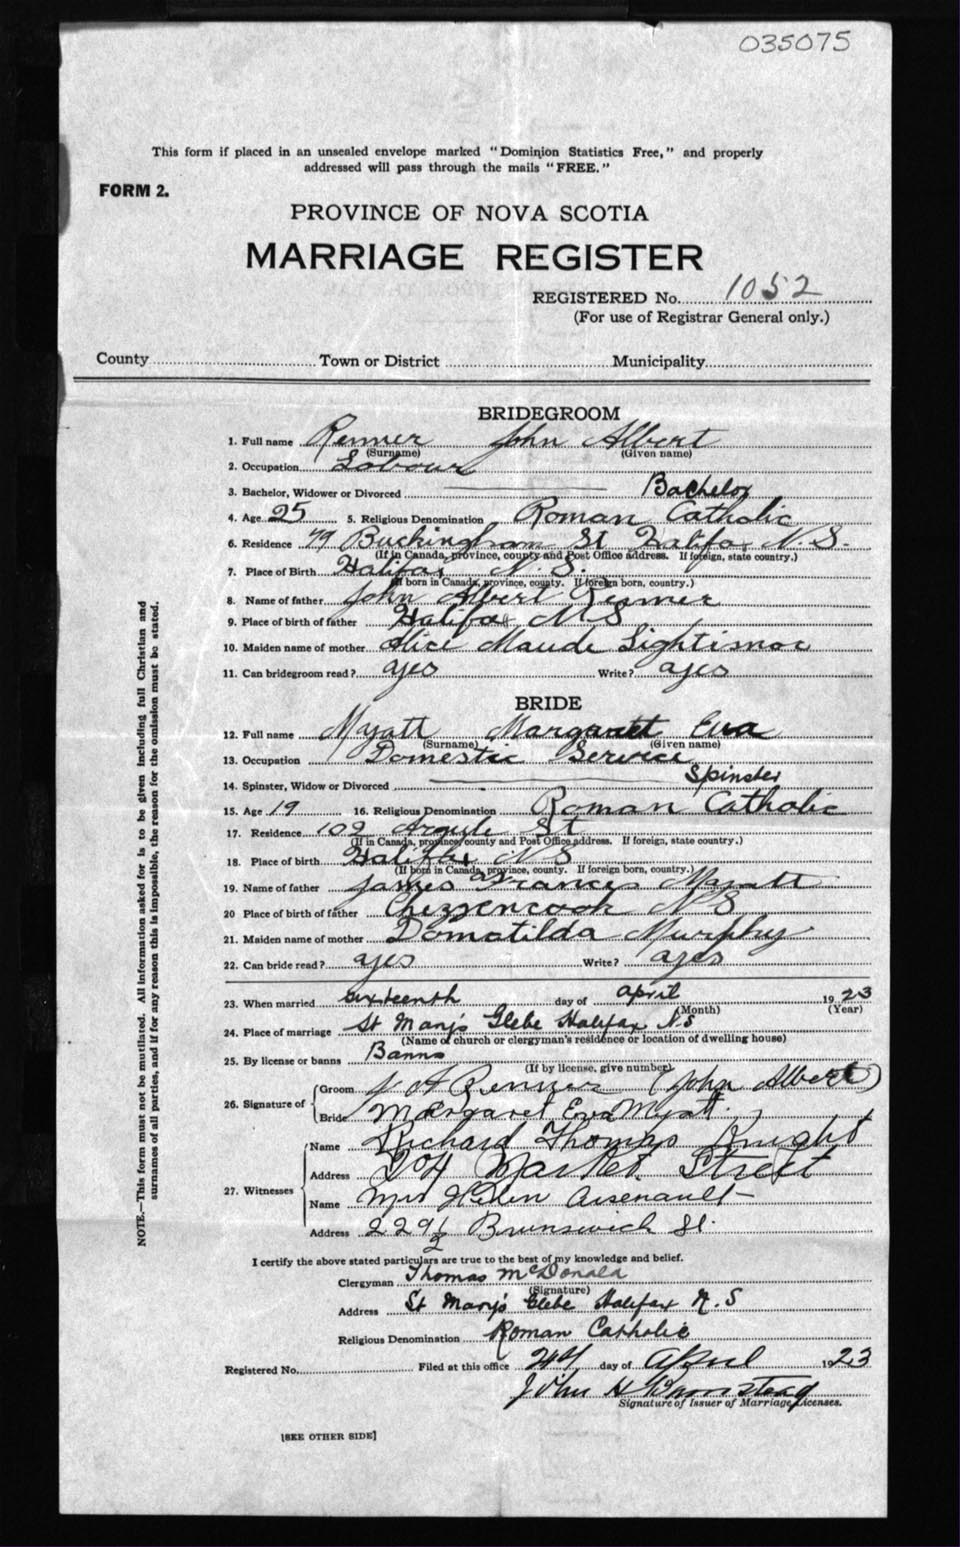 035075
This form if placed in an unsealed envelope marked "Dominion Statistics Free," and properly
addressed will pass through the mails "FREE."
FORM 2.
PROVINCE OF NOVA SCOTIA
MARRIAGE REGISTER
REGISTERED No. 1052
(For use of Registrar General only.)
County Town or District Municipality
BRIDEGROOM
1. Full name Renner John Albert
(Surname) (Given name)
2. Occupation Labour
3. Bachelor, Widower or Divorced Bachelor
4. Age 25 5. Religious Denomination Roman Catholic
6. Residence 79 Buckingham St Halifax N.S.
(If in Canada, province, county and Post Office address. If foreign, state country.)
7. Place of Birth Halifax N.S.
(If born in Canada, province, county. If foreign born, country.)
8. Name of father John Albert Renner
9. Place of birth of father Halifax N S
10. Maiden name of mother Alice Maude
11. Can bridegroom read? ayes Write? ayes
BRIDE
12. Full name Myatt Margaret Eva
(Surname) (Given name)
13. Occupation Domestic Service
14. Spinster, Widow or Divorced Spinster
15. Age 19 16. Religious Denomination Roman Catholic
17. Residence 102 Argyle St
(If in Canada, province, county and Post Office address. If foreign, state country.)
18. Place of birth Halifax N S
(If born in Canada, province, county. If foreign born, country.)
19. Name of father James Francis Myatt
20 Place of birth of father Chezzencook N S
21. Maiden name of mother Domatilda Murphy
22. Can bride read? ayes Write? ayes
23. When married sixteenth day of April 1923
(Month) (Year)
24. Place of marriage St Mary's Glebe Halifax N S
(Name of church or clergyman's residence or location of dwelling house)
25. By license or banns Banns
(If by license, give number)
26. Signature of Groom J A Renner (John Albert)
Bride Margaret Eva Myatt.
27. Witnesses
Name Richard Thomas Knight
Address Market Street
Name Mrs Helen Arsenault
Address 229½ Brunswick St.
I certify the above stated particulars are true to the best of my knowledge and belief.
Clergyman Thomas McDonald
(Signature)
Address St Mary's Glebe Halifax N.S
Religious Denomination Roman Catholic
Registered No. Filed at this office 24 day of April 1923
John H
Signature of Issuer of Marriage Licenses.
[SEE OTHER SIDE]
NOTE.—This form must not be mutilated. All information asked for is to be given including full Christian and
surnames of all parties, and if for any reason this is impossible, the reason for the omission must be stated.